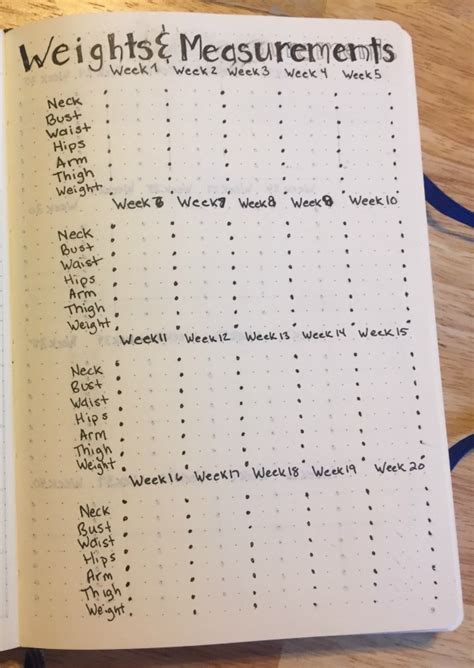 Weights & Measurements
Week 1 Week 2 Week 3 Week 4 Week 5
Neck
Bust
Waist
Hips
Arm
Thigh
Weight
Week 6 Week 7 Week 8 Week 9 Week 10
Neck
Bust
Waist
Hips
Arm
Thigh
Weight
Week 11 Week 12 Week 13 Week 14 Week 15
Neck
Bust
Waist
Hips
Arm
Thigh
Weight
Week 16 Week 17 Week 18 Week 19 Week 20
Neck
Bust
Waist
Hips
Arm
Thigh
Weight